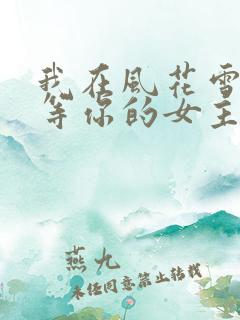 我在风花雪
等你的女主
燕九
未经同意禁止转载